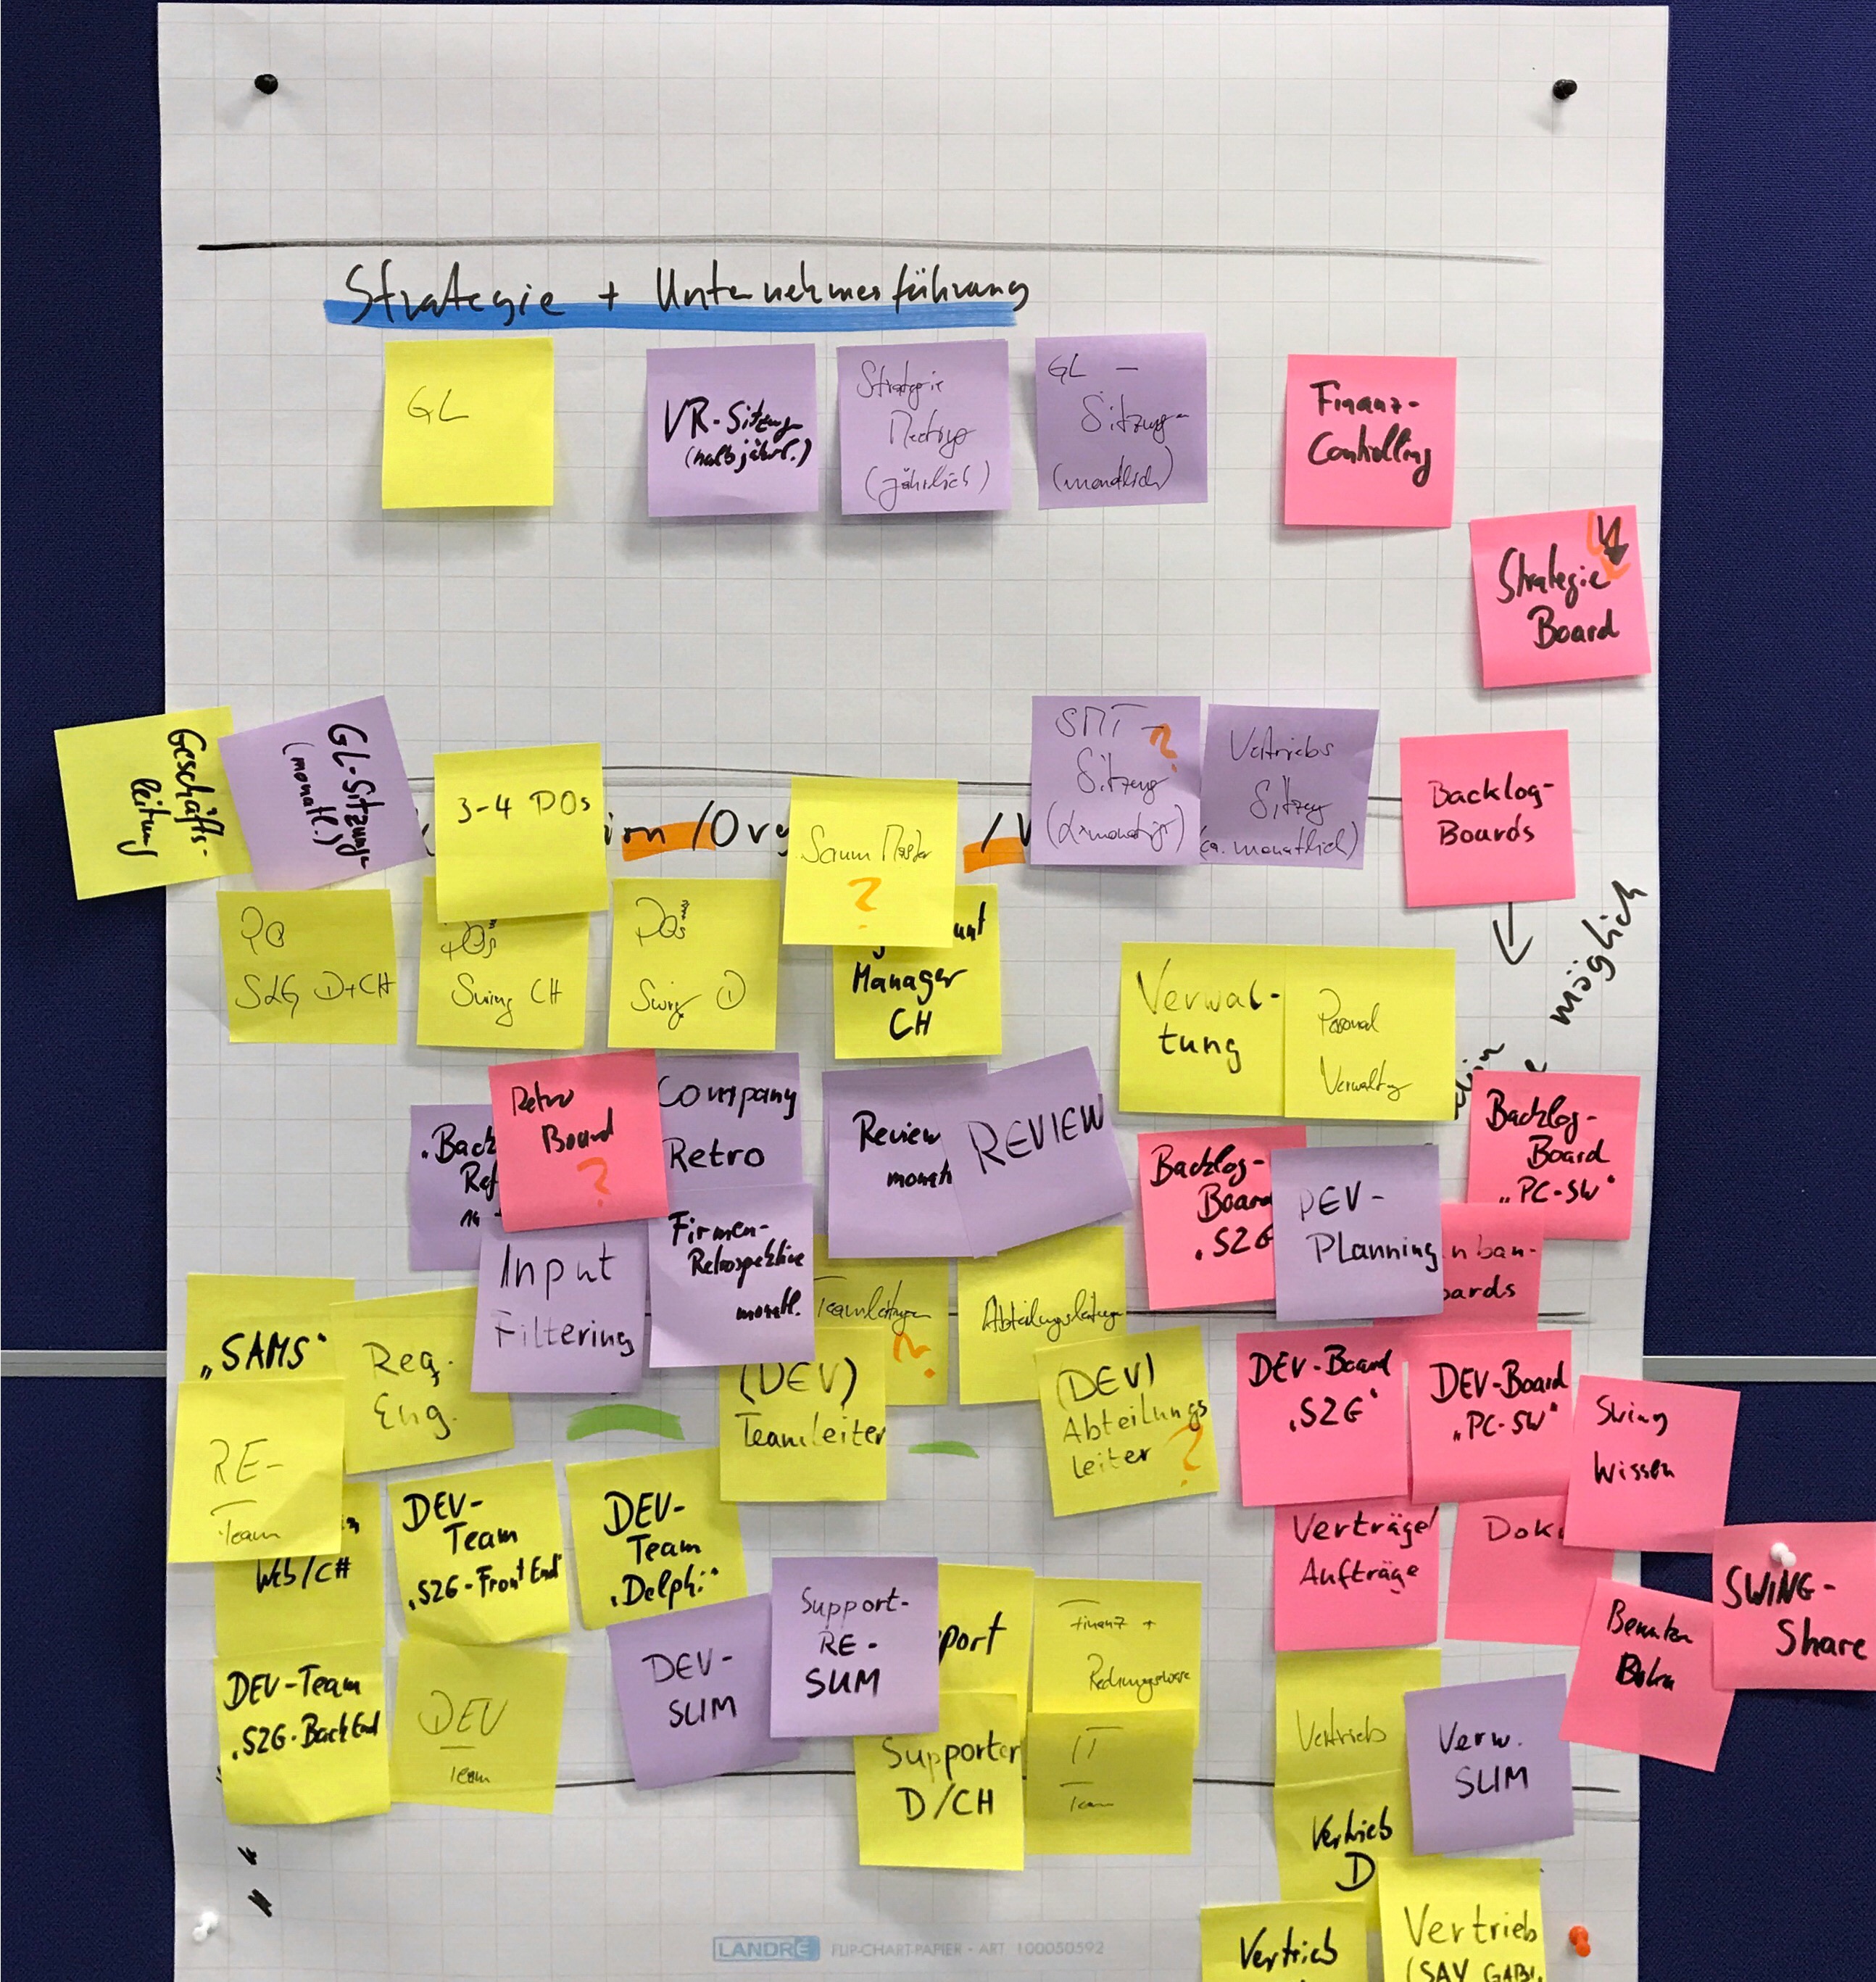 Strategie + Unternehmensführung
GL
VR-Sitzung
(halbjährl.)
Strategie
Meetings
(jährlich)
GL -
Sitzung
(monatlich)
Finanz-
Controlling
Strategie
Board
Geschäfts-
leitung
GL-Sitzung
(monatl.)
3-4 POs
ion /Org
/V
Scrum Master
?
SMT - ?
Sitzung
Vertriebs
Sitzung
(ca. monatlich)
Backlog-
Boards
möglich
PO
S2G D+CH
POs
Swing CH
POs
Swing D
Manager
CH
Verwal-
tung
Personal
Verwaltung
Retro
Board
?
Company
Retro
Review
REVIEW
Backlog-
Board
"S2G
DEV-
PLanning
Backlog-
Board
"PC-SW"
Input
Filtering
Firmen-
Retrospektive
monatl.
nban-
oards
"SAMS"
Req.
Eng.
Teamleitung
?
(DEV)
Teamleiter
(DEV)
Abteilungs
Leiter
?
DEV-Board
"S2G"
DEV-Board
"PC-SW"
Swing
Wissen
RE-
Team
Web/C#
DEV-
Team
"S2G-FrontEnd"
DEV-
Team
"Delphi"
Verträge/
Aufträge
Dok
SWING-
Share
DEV-Team
"S2G-BackEnd
DEV
Team
DEV-
SLIM
Support-
RE-
SUM
port
Finanz +
Rechnungswesen
Supporter
D/CH
IT
Team
Vertrieb
Verw.
SLIM
Vertrieb
D
Vertrieb
Vertrieb
LANDRÉ FLIP-CHART-PAPIER - ART 100050592